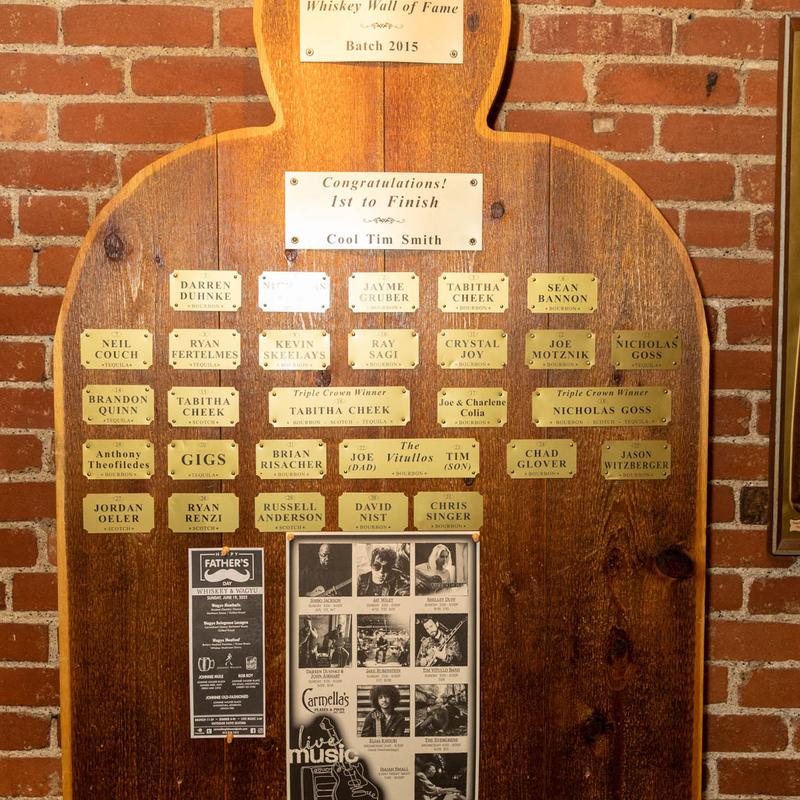 Whiskey Wall of Fame
Batch 2015
Congratulations!
1st to Finish
Cool Tim Smith
DARREN
DUHNKE
BOURBON
JAYME
GRUBER
BOURBON
TABITHA
CHEEK
BOURBON
SEAN
BANNON
BOURBON
NEIL
COUCH
TEQUILA
RYAN
FERTELMES
TEQUILA
KEVIN
SKEELAYS
BOURBON
RAY
SAGI
BOURBON
CRYSTAL
JOY
BOURBON
JOE
MOTZNIK
BOURBON
NICHOLAS
GOSS
TEQUILA
BRANDON
QUINN
TEQUILA
TABITHA
CHEEK
SCOTCH
Triple Crown Winner
TABITHA CHEEK
BOURBON SCOTCH TEQUILA
Joe & Charlene
Colia
BOURBON
Triple Crown Winner
NICHOLAS GOSS
BOURBON SCOTCH TEQUILA
Anthony
Theofiledes
BOURBON
GIGS
TEQUILA
BRIAN
RISACHER
BOURBON
The
JOE Vitullos TIM
(DAD) (SON)
BOURBON
CHAD
GLOVER
BOURBON
JASON
WITZBERGER
BOURBON
JORDAN
OELER
SCOTCH
RYAN
RENZI
SCOTCH
RUSSELL
ANDERSON
SCOTCH
DAVID
NIST
BOURBON
CHRIS
SINGER
BOURBON
HAPPY
FATHER'S
DAY
WHISKEY & WAGYU
SUNDAY, JUNE 19, 2022
Wagyu Meatballs
Wagyu Bolognese Lasagna
Wagyu Meatloaf
JOHNNIE MULE
ROB ROY
JOHNNIE OLD-FASHIONED
JIMBO JACKSON
JAY WILEY
SHELLEY DUFF
DARREN DUHNKE &
JOHN AIRHART
JAKE RUBENSTEIN
TIM VITULLO BAND
Carmella's
PLATES & PINTS
ELIAS KHOURI
THE EVERGREENS
live
music
ISAIAH SMALL